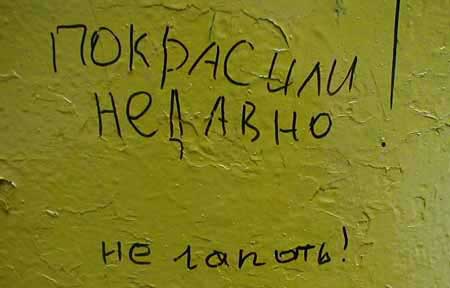 ПОКРАСИЛИ
НЕДАВНО!
не лапоть!